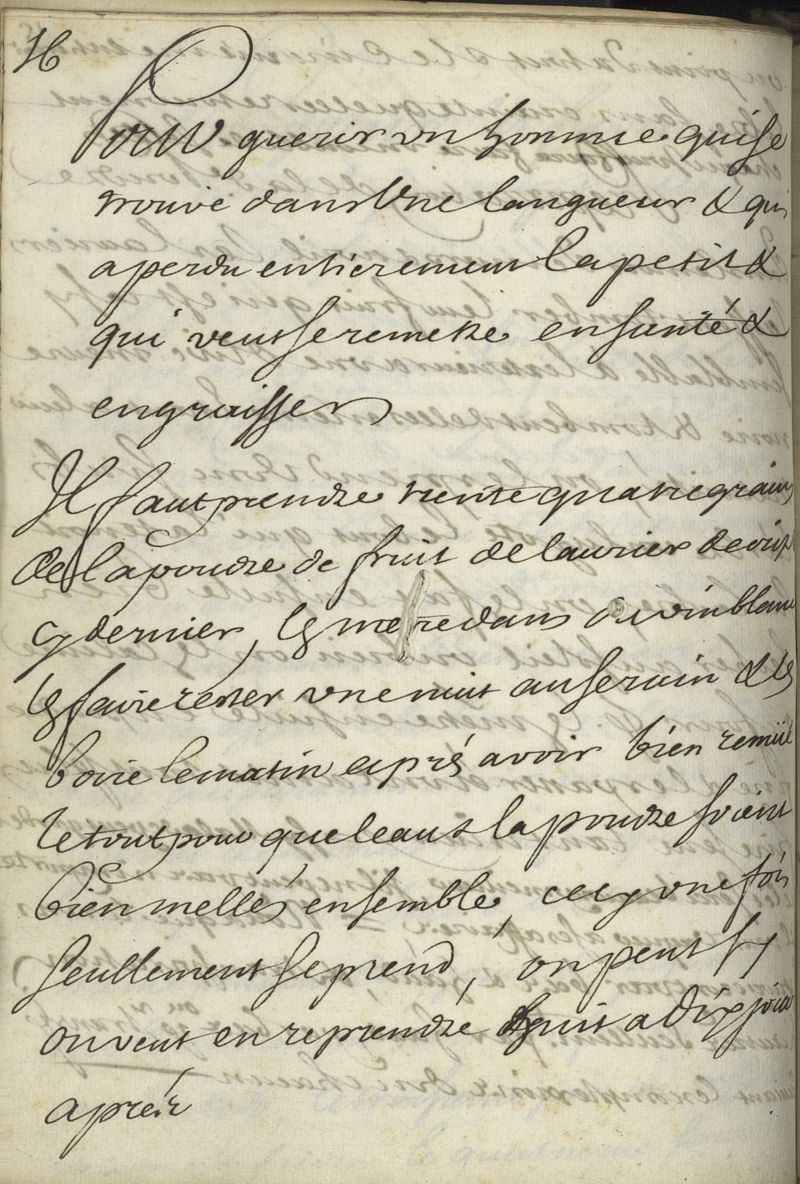 16
Pour guerir un homme qui se
trouve dans Une langueur & qui
a perdu entierement lapetit &
qui veut se remetre en santé &
engraisser
Il faut prendre trente quatre grains
de la poudre de fruit de laurier
cy dernier, les metre dans du vin blanc
les faire rester une nuit au serain & les
boire le matin aprés avoir bien remüé
le tout pour que leau & la poudre soient
bien mellés ensemble, cecy une fois
seullement se prend, on peut sy
on veut en reprendre huit a dix jours
aprés